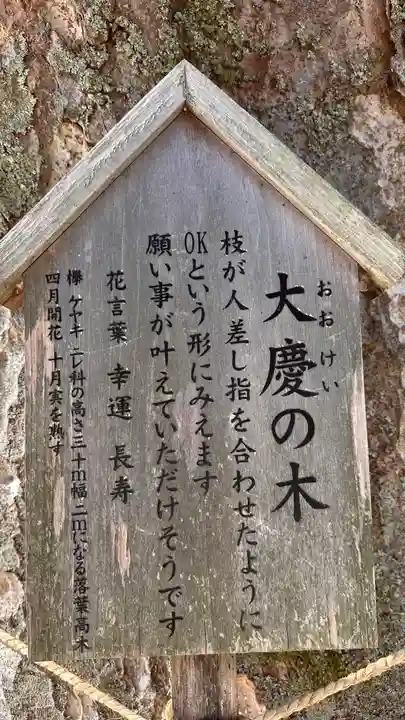 大慶の木
おおけい
枝が人差し指を合わせたように
OKという形にみえます
願い事が叶えていただけそうです
花言葉 幸運 長寿
欅 ケヤキ ニレ科の高さ三十m幅二mになる落葉高木
四月開花 十月実を熟す